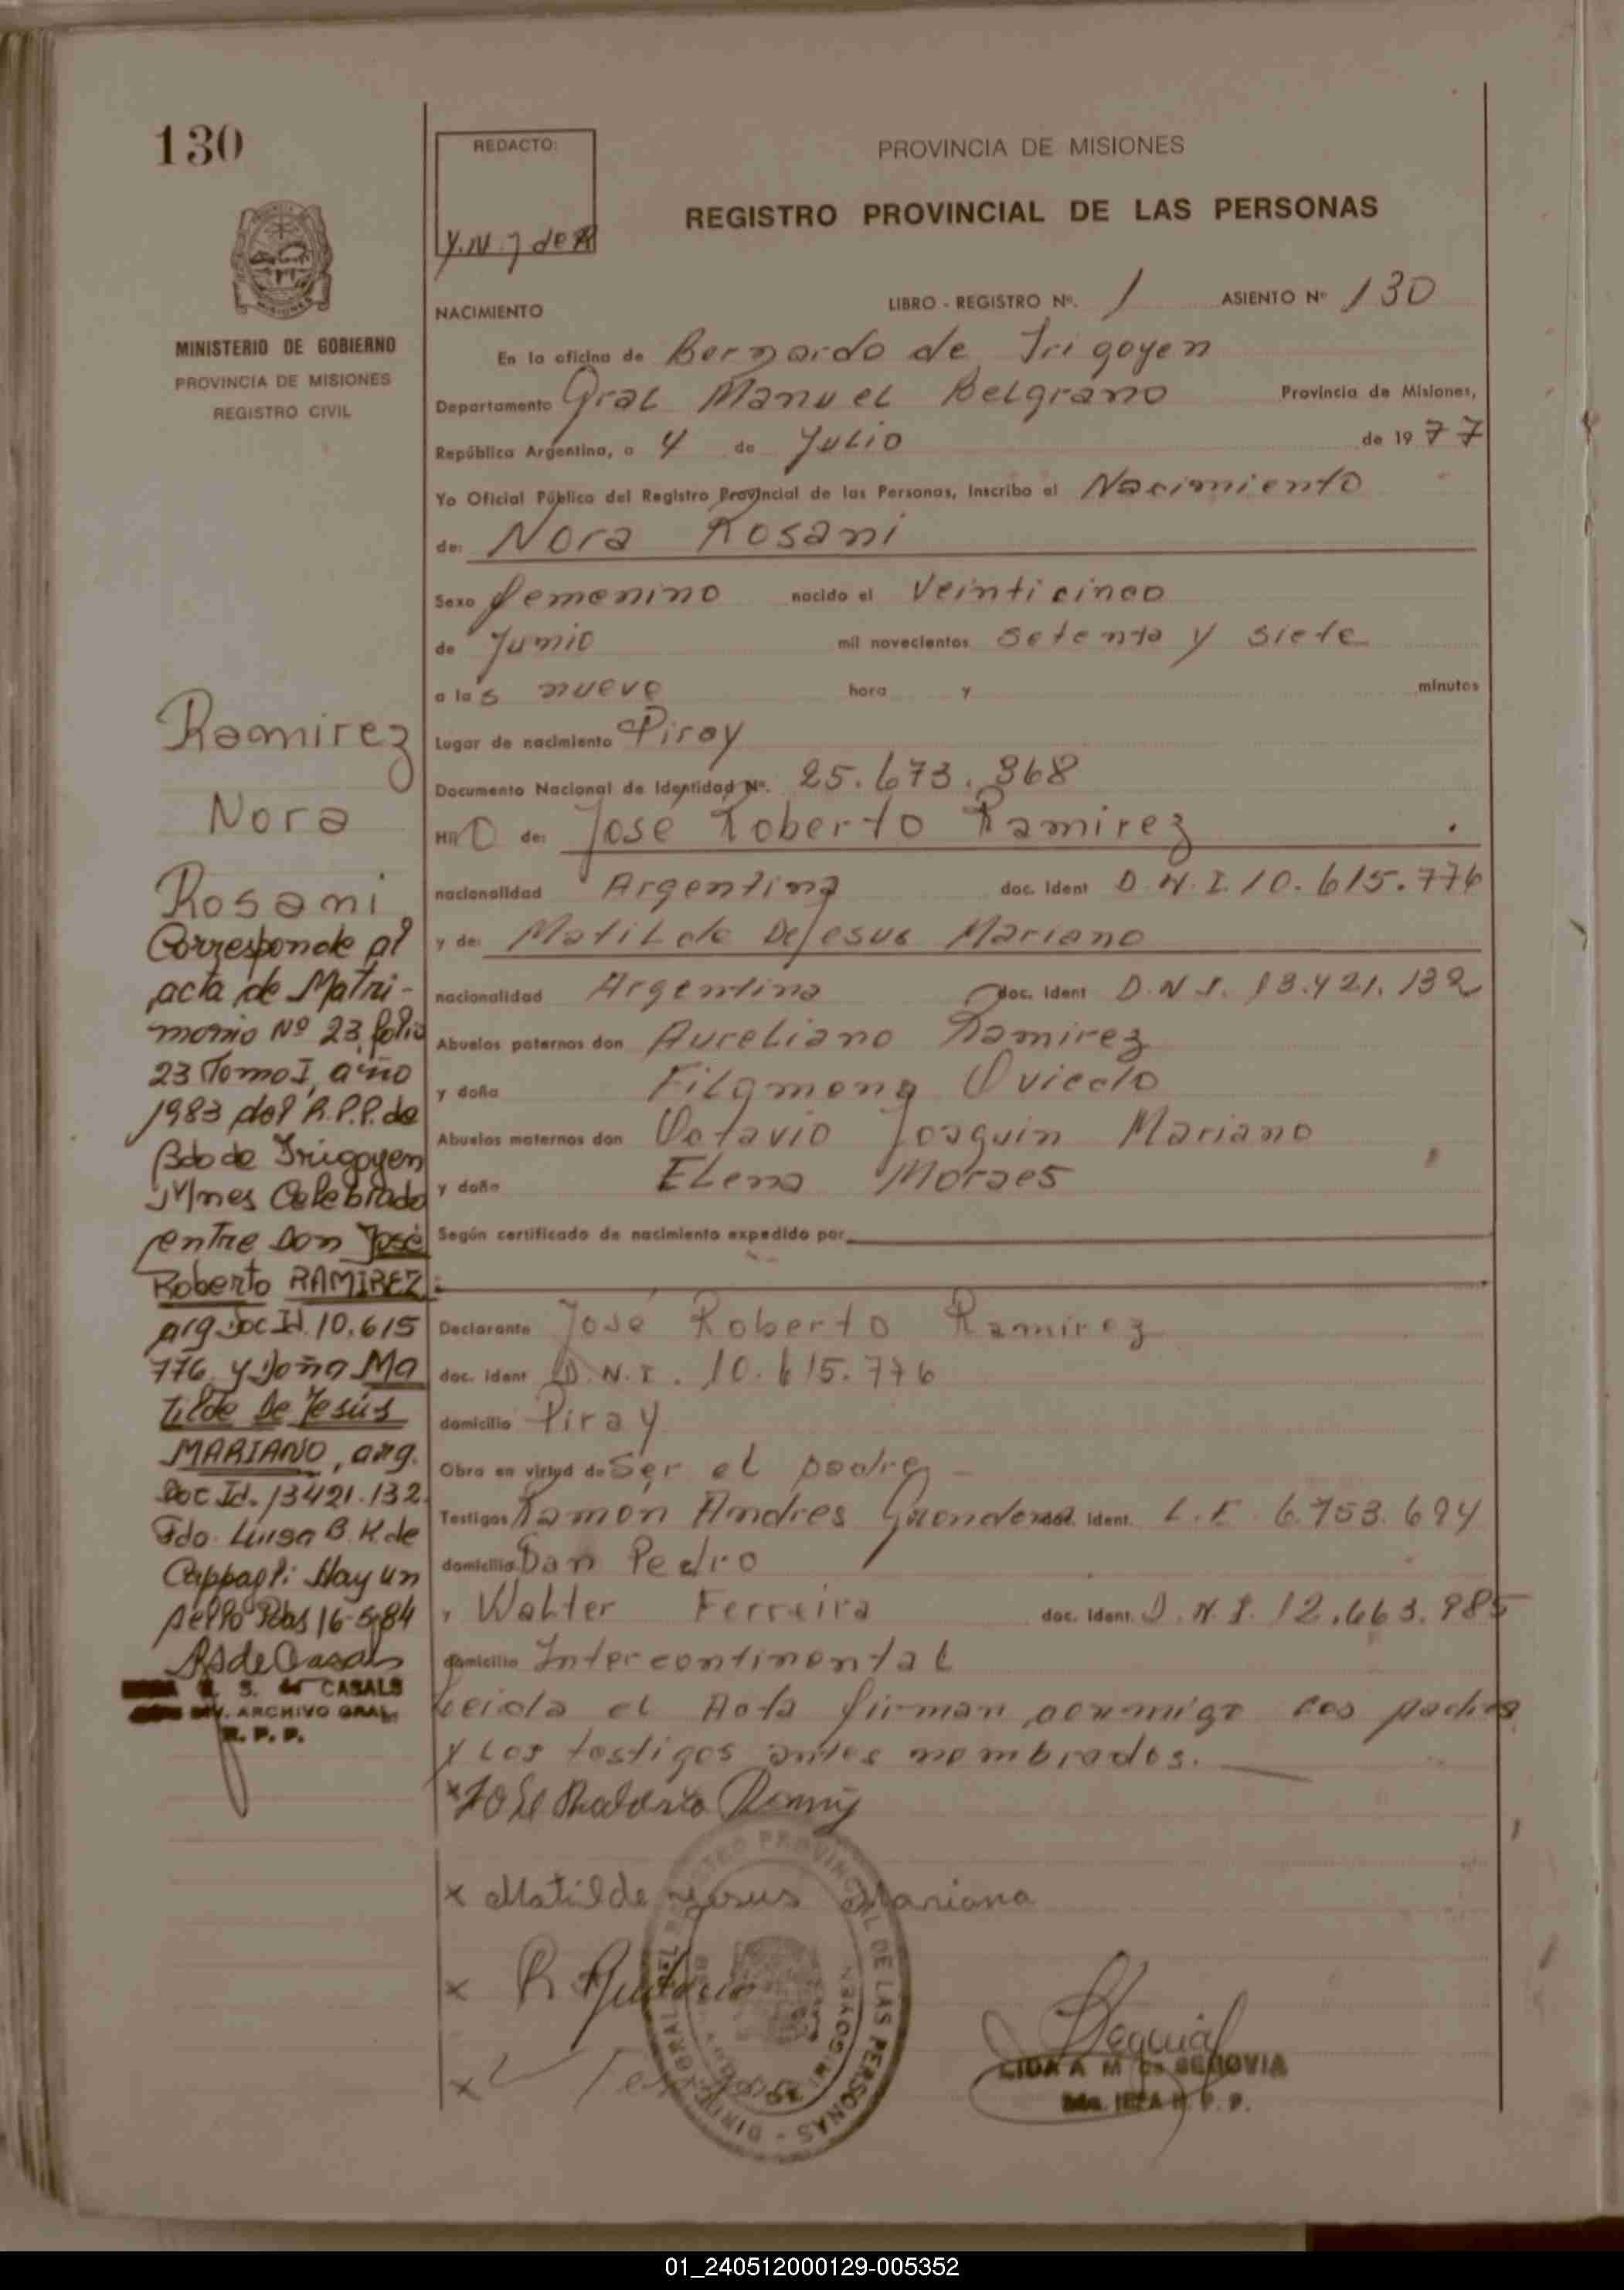 130
REDACTO:
PROVINCIA DE MISIONES
REGISTRO PROVINCIAL DE LAS PERSONAS
NACIMIENTO
LIBRO - REGISTRO Nº. 1 ASIENTO Nº 130
MINISTERIO DE GOBIERNO
PROVINCIA DE MISIONES
REGISTRO CIVIL
En la oficina de Bernardo de Irigoyen
Departamento Gral Manuel Belgrano Provincia de Misiones,
República Argentina, a 4 de Julio de 1977
Yo Oficial Público del Registro Provincial de las Personas, Inscribo el Nacimiento
de: Nora Rosani
Sexo femenino nacido el Veinticinco
de Junio mil novecientos setenta y siete
a las nueve hora y minutos
Lugar de nacimiento Piray
Documento Nacional de Identidad Nº. 25.673.368
Hij O de: José Roberto Ramirez
nacionalidad Argentina doc. Ident D.N.I. 10.615.776
y de: Matilde DeJesus Mariano
nacionalidad Argentina doc. Ident D.N.I. 13.421.132
Abuelos paternos don Aureliano Ramirez
y doña Filomena Oviedo
Abuelos maternos don Octavio Joaquin Mariano
y doña Elena Moraes
Según certificado de nacimiento expedido por
Declarante José Roberto Ramirez
doc. Ident D.N.I. 10.615.776
domicilio Piray
Obra en virtud de Ser el padre
Testigos Ramón Andres doc. Ident. L.E. 6.753.694
domicilio San Pedro
y Walter Ferreira doc. Ident. D.N.I. 12.663.985
domicilio Intercontinental
Leida el Acta firman conmigo los padres
y los testigos antes nombrados.
Ramirez
Nora
Rosani
Corresponde al
acta de Matri-
monio Nº 23 folio
23 Tomo I, año
1983 del R.P.P. de
Bdo de Irigoyen
Mnes Celebrado
entre Don José
Roberto RAMIREZ
arg Doc Id. 10.615
776 y Doña Ma
tilde De Jesús
MARIANO, arg.
Doc Id. 13421.132
Fdo. Luisa B. K. de
Cappagli Hay un
sello Pdas 16-5-84
S. de CASALS
DIV. ARCHIVO GRAL.
R. P. P.
x Matilde Jesus Mariano
REGISTRO PROVINCIAL DE LAS PERSONAS
LIDA A M de SEGOVIA
JEFA R. P. P.
01_240512000129-005352